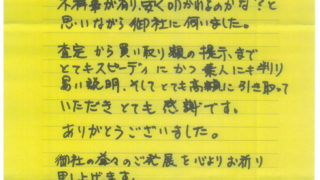 不料事が有り、安く叩かれるのかな?と
思いながら御社に伺いました。
査定から買い取り額の提示まで
とてもスピーディにかつ素人にも判り
易い説明、そしてとても高額に引き取って
いただきとても感謝です。
ありがとうございました。
御社の益々のご発展を心よりお祈り
申し上げます。